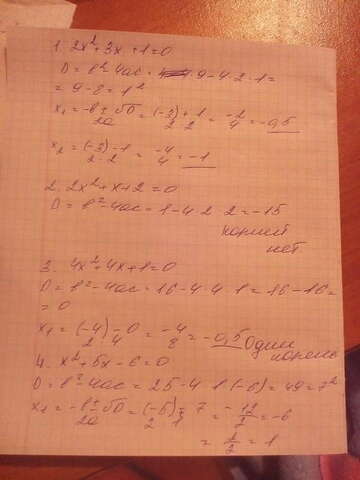 1. 2x²+3x+1=0
D=b²-4ac= 9-4·2·1=
=9-8=1²
x₁=-b±√D/2a=(-3)+1/2·2=-2/4=-0,5
x₂=(-3)-1/2·2=-4/4=-1
2. 2x²+x+2=0
D=b²-4ac=1-4 2 2=-15
корней
нет.
3. 4x²+4x+1=0
D=b²-4ac=16-4 4 1=16-16=
=0
x₁=(-4)-0/2 4=-4/8=-0,5 Один
корень
4. x²+5x-6=0
D=b²-4ac=25-4 1 (-6)=49=7²
x₁=-b±√D/2a=(-5)∓7/2 1=-12/2=-6
=2/2=1